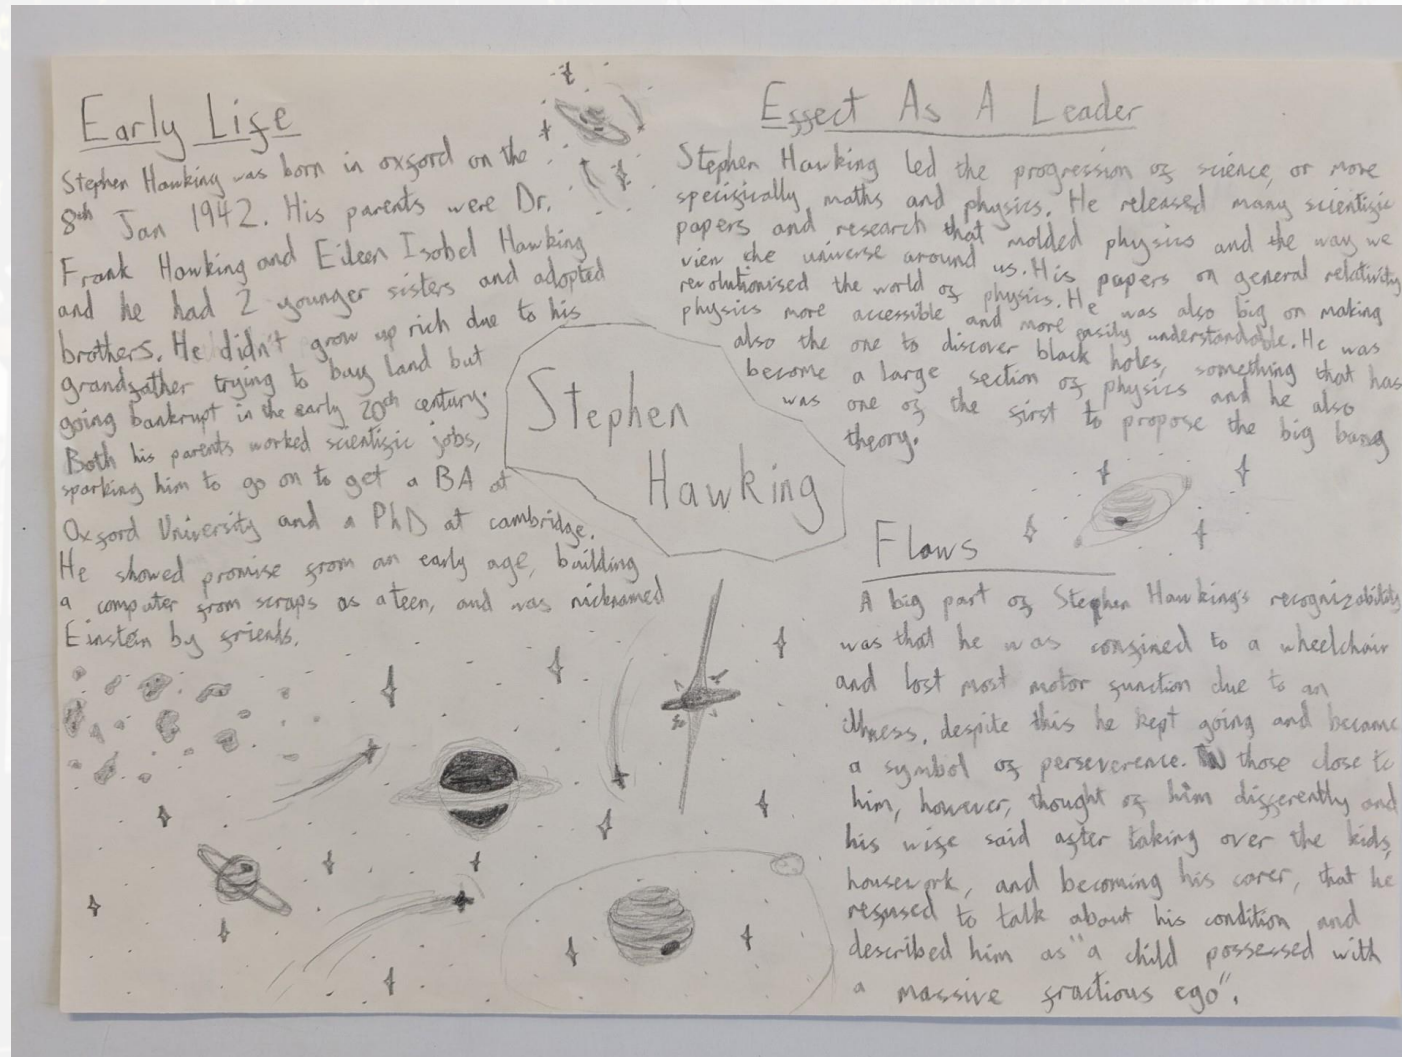 Early Life
Stephen Hawking was born in oxford on the
8th Jan 1942. His parents were Dr.
Frank Hawking and Eileen Isobel Hawking
and he had 2 younger sisters and adopted
brothers. He didn't grow up rich due to his
grandfather trying to buy land but
going bankrupt in the early 20th century.
Both his parents worked scientific jobs,
sparking him to go on to get a BA at
Oxford University and a PhD at cambridge.
He showed promise from an early age, building
a computer from scraps as a teen, and was nicknamed
Einstein by friends.
Stephen
Hawking
Effect As A Leader
Stephen Hawking led the progression of science, or more
specifically, maths and physics. He released many scientific
papers and research that molded physics and the way we
view the universe around us. His papers on general relativity
revolutionised the world of physics. He was also big on making
physics more accessible and more easily understandable. He was
also the one to discover black holes, something that has
become a large section of physics and he also
was one of the first to propose the big bang
theory.
Flaws
A big part of Stephen Hawking's recognizability
was that he was confined to a wheelchair
and lost most motor function due to an
illness, despite this he kept going and became
a symbol of perseverence. those close to
him, however, thought of him differently and
his wife said after taking over the kids,
housework, and becoming his carer, that he
refused to talk about his condition and
described him as "a child possessed with
a massive fractious ego".